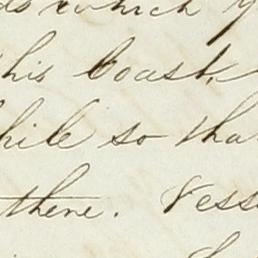 which
this Coast
while so tha
there. Vess